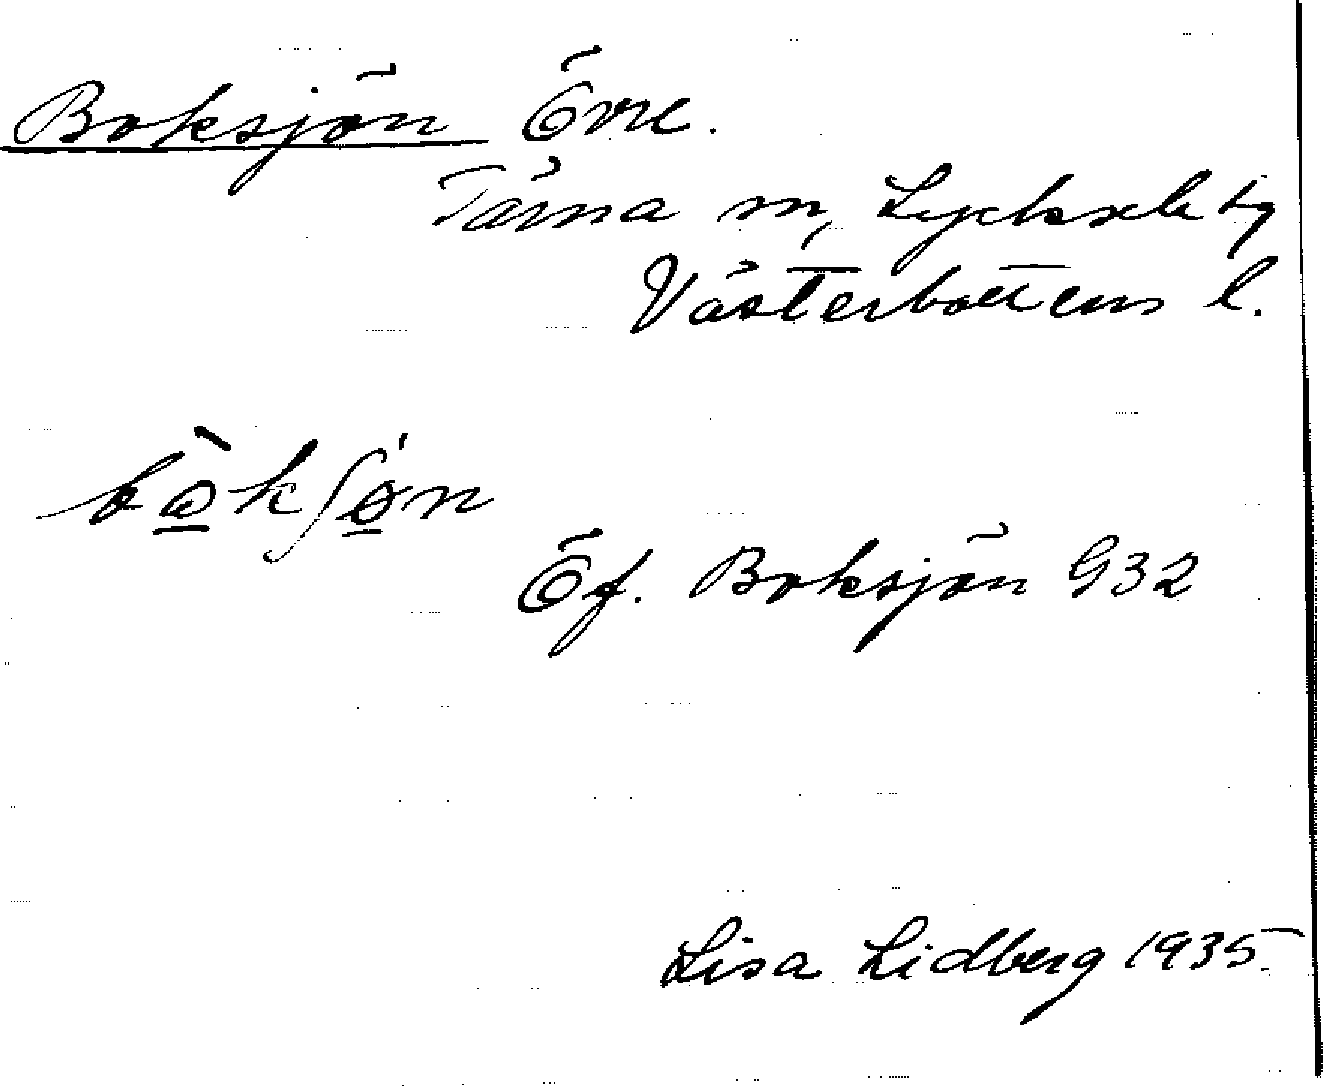 Boksjön Övre.
Tärna sn, Lycksele tg
Västerbottens l.
bò̲kʃǿ̲n
Öf. Boksjön G32
Lisa Lidberg 1935